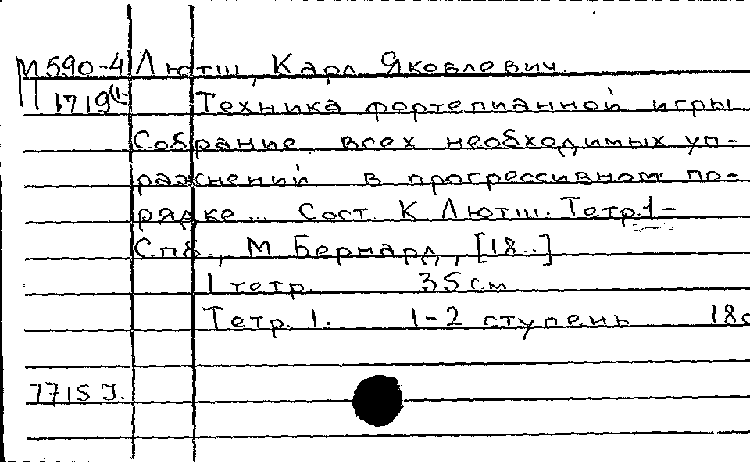 М590-4 Лютш, Карл Яковлевич.
П 1719(1 Техника фортепианной игры
Собрание всех необходимых уп-
ражнений в прогрессивном по-
рядке... Сост. К Лютш. Тетр.1-
Спб., М Бернард, [18..]
1 тетр. 35 см
Тетр. 1. 1-2 ступень 18с
7715 J.